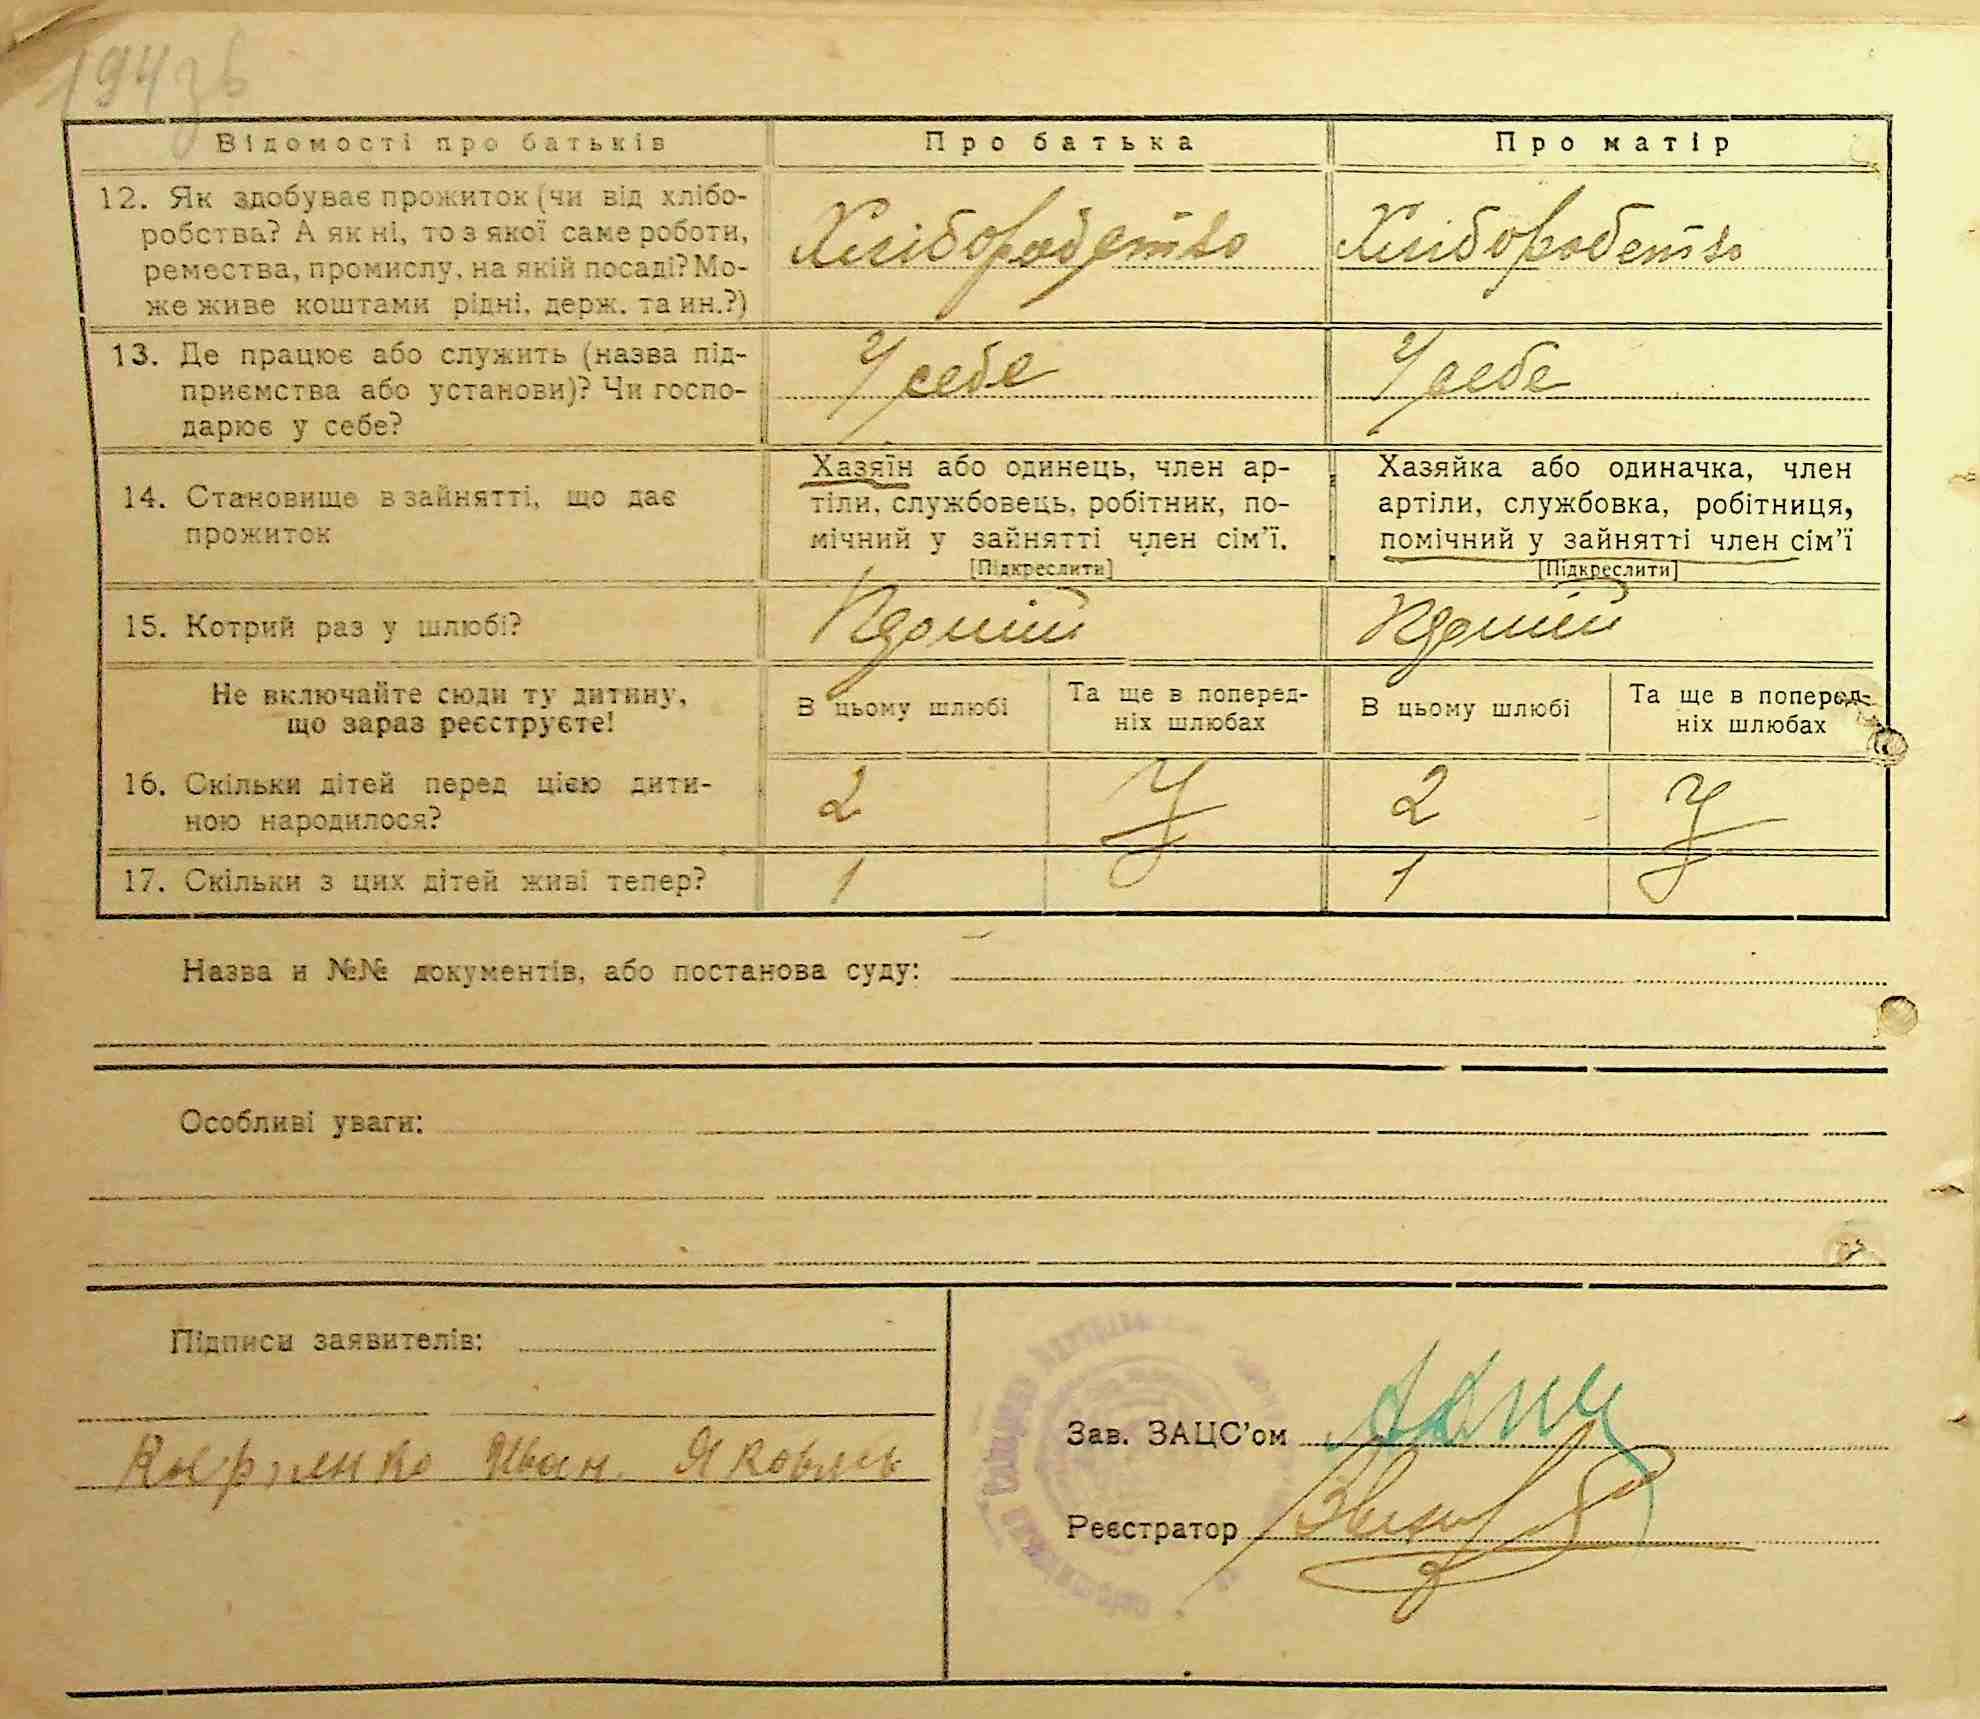 194 зв
Відомості про батьків
Про батька
Про матір
12. Як здобуває прожиток (чи від хлібо-
робства? А як ні, то з якої саме роботи,
ремества, промислу, на якій посаді? Мо-
же живе коштами рідні, держ. та ин.?)
Хліборобство
Хліборобство
13. Де працює або служить (назва під-
приємства або установи)? Чи госпо-
дарює у себе?
У себе
У себе
14. Становище в зайнятті, що дає
прожиток
Хазяїн або одинець, член ар-
тіли, службовець, робітник, по-
мічний у зайнятті член сім'ї.
[Підкреслити]
Хазяйка або одиначка, член
артіли, службовка, робітниця,
помічний у зайнятті член сім'ї
[Підкреслити]
15. Котрий раз у шлюбі?
Не включайте сюди ту дитину,
що зараз реєструєте!
В цьому шлюбі
Та ще в поперед-
ніх шлюбах
В цьому шлюбі
Та ще в поперед-
ніх шлюбах
16. Скільки дітей перед цією дити-
ною народилося?
2
2
17. Скільки з цих дітей живі тепер?
1
1
Назва и №№ документів, або постанова суду:
Особливі уваги:
Підписи заявителів:
Иван Яковлев
Зав. ЗАЦС'ом
Реєстратор